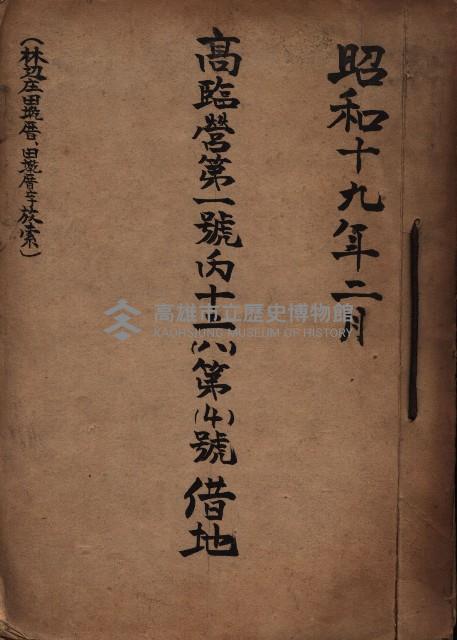 昭和十九年二月
高臨營第一號丙十五(八)第(4)號 借地
(林辺庄田墘厝、田墘厝字放索)
高雄市立歷史博物館
KAOHSIUNG MUSEUM OF HISTORY